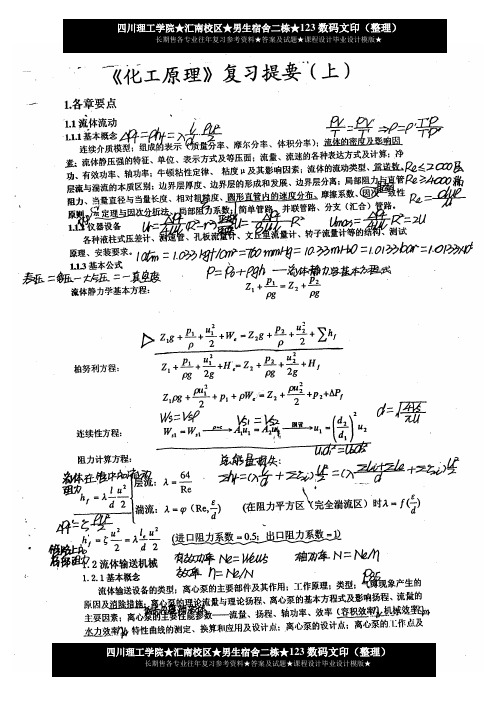 四川理工学院★汇南校区★男生宿舍二栋★123数码文印（整理）
长期售各专业往年复习参考资料★答案及试题★课程设计毕业设计模版★
《化工原理》复习提要（上）
1.各章要点
1.1 流体流动
1.1.1 基本概念 ΔPf=ρhf=λ
连续介质模型；组成的表示（质量分率、摩尔分率、体积分率）；流体的密度及影响因
素；流体静压强的特征、单位、表示方式及等压面；流量、流速的各种表达方式及计算；净
功、有效功率、轴功率；牛顿粘性定律、粘度 μ 及其影响因素；流体的流动类型、雷诺数、Re≤2000
层流与湍流的本质区别；边界层厚度、边界层的形成和发展、边界层分离；局部阻力与直管 Re≥4000
阻力、当量直径与当量长度、相对粗糙度、圆形直管内的速度分布、摩擦系数、因次一致性
原则、π定理与因次分析法、局部阻力系数；简单管路、并联管路、分支（汇合）管路。
1.1.2 仪器设备
各种液柱式压差计、测速管、孔板流量计、文丘里流量计、转子流量计等的结构、测试
原理、安装要求。1atm=1.033kgf/cm²=760mmHg=10.33mH₂O=1.0133bar=
1.1.3 基本公式 P=P₀+ρgh —流体静力学基本方程式
表压=绝压-大气压=-真空度
流体静力学基本方程： Z₁+p₁/ρg=Z₂+p₂/ρg
Z₁g+p₁/ρ+u₁²/2+Wₑ=Z₂g+p₂/ρ+u₂²/2+∑hf
柏努利方程： Z₁+p₁/ρg+u₁²/2g+Hₑ=Z₂+p₂/ρg+u₂²/2g+Hf
Z₁ρg+ρu₁²/2+p₁+ρWₑ=Z₂+ρu₂²/2+p₂+ΔPf
Ws=Vsρ Vs1=Vs2
连续性方程： Ws1=Ws2 →(ρ=c) A₁u₁=A₂u₂ →(圆管) u₁=(d₂/d₁)²u₂
阻力计算方程： 总能量损失：
层流：λ=64/Re
hf=λ l/d u²/2
湍流：λ=φ(Re, ε/d) (在阻力平方区（完全湍流区）时 λ=f(ε/d)
h'f=ζ u²/2=λ le/d u²/2 (进口阻力系数=0.5；出口阻力系数=1)
有效功率 Ne=WeWs 轴功率 N=Ne/η
1.2 流体输送机械
效率 η=Ne/N
1.2.1 基本概念
流体输送设备的类型；离心泵的主要部件及其作用；工作原理；类型；气缚现象产生的
原因及消除措施；离心泵的理论流量与理论扬程、离心泵的基本方程式及影响扬程、流量的
主要因素；离心泵的主要性能参数——流量、扬程、轴功率、效率（容积效率、机械效率、
水力效率）；特性曲线的测定、换算和应用及设计点；离心泵的设计点；离心泵的工作点及
四川理工学院★汇南校区★男生宿舍二栋★123数码文印（整理）
长期售各专业往年复习参考资料★答案及试题★课程设计毕业设计模版★